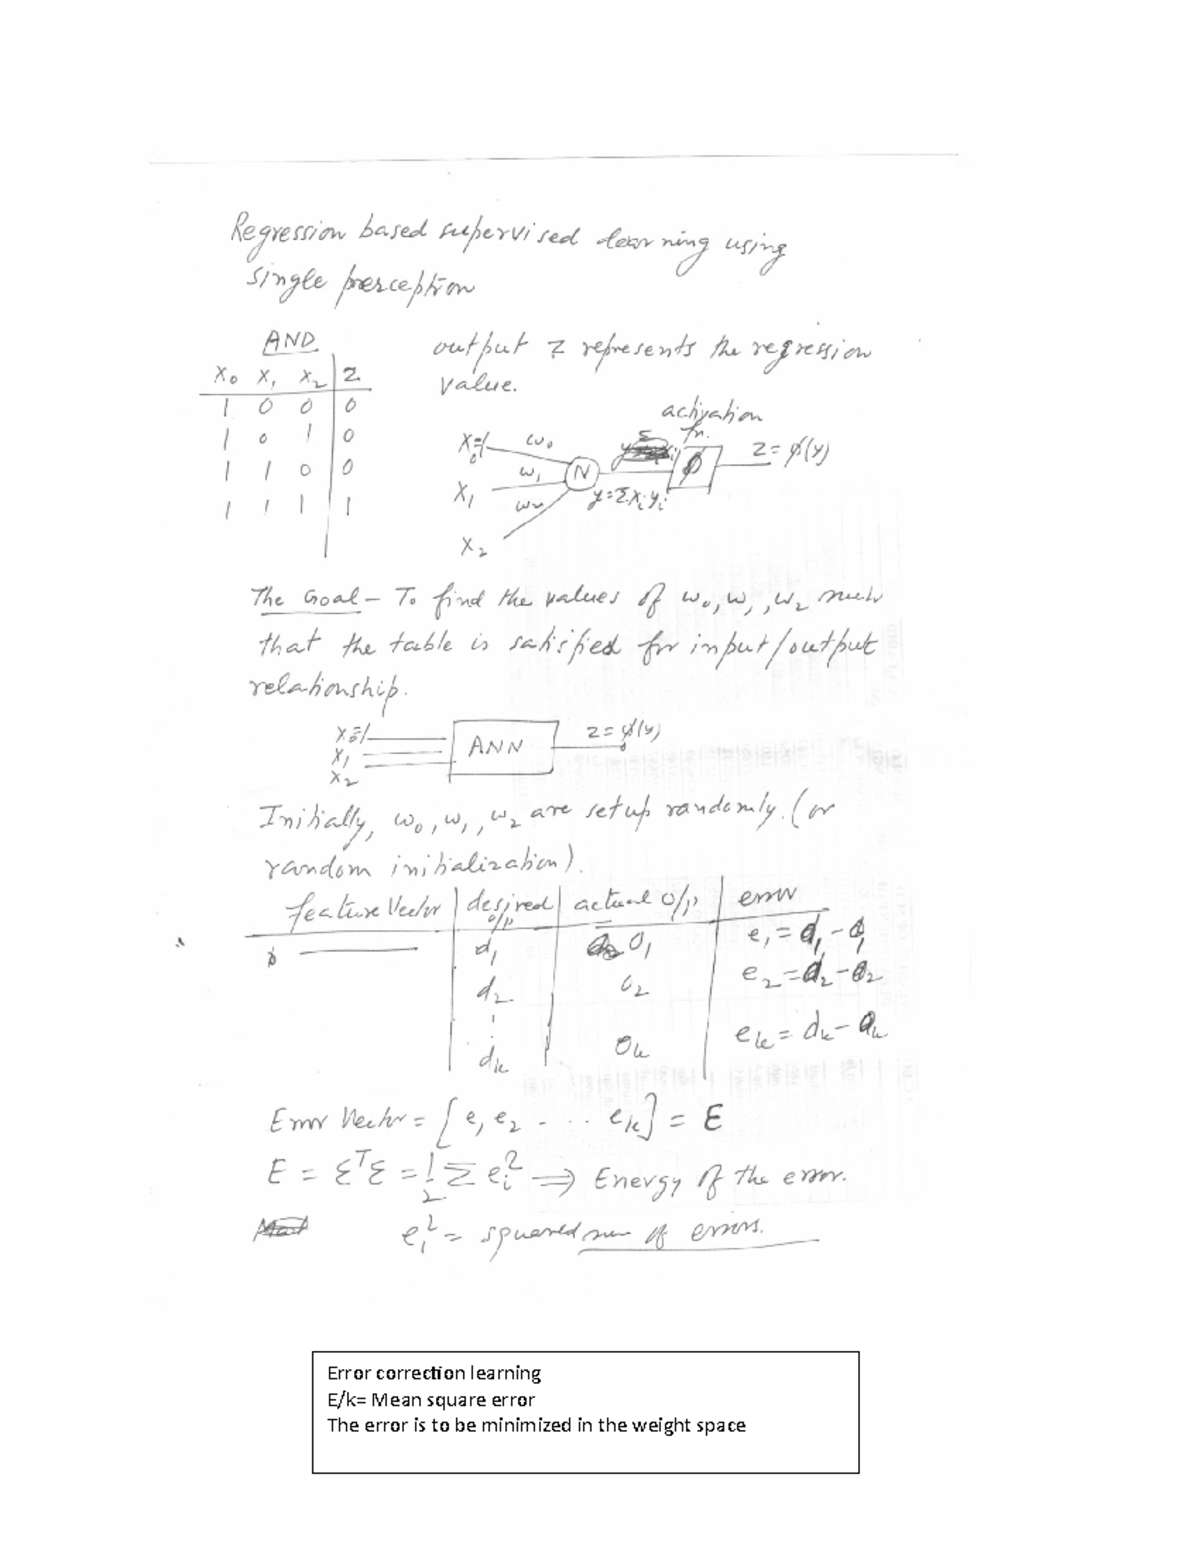 Regression based supervised learning using
single perception
AND
X₀ X₁ X₂ Z
1 0 0 0
1 0 1 0
1 1 0 0
1 1 1 1
output Z represents the regression
value.
activation
fn.
X₀=1 w₀
X₁ w₁
X₂ w₂
N
y=Σxᵢyᵢ
ϕ
Z=ϕ(y)
The Goal – To find the values of w₀, w₁, w₂ such
that the table is satisfied for input/output
relationship.
X₀=1
X₁
X₂
ANN
Z=ϕ(y)
Initially, w₀, w₁, w₂ are set up randomly. (or
random initialization).
feature Vector desired o/p actual o/p error
d₁ O₁ e₁ = d₁ – O₁
d₂ O₂ e₂ = d₂ – O₂
dₖ Oₖ eₖ = dₖ – Oₖ
Error Vector = [e₁ e₂ - ... eₖ] = Ɛ
E = ƐᵀƐ = 1/2 Σ eᵢ² ⇒ Energy of the error.
e₁² = squared sum of errors.
Error correction learning
E/k= Mean square error
The error is to be minimized in the weight space